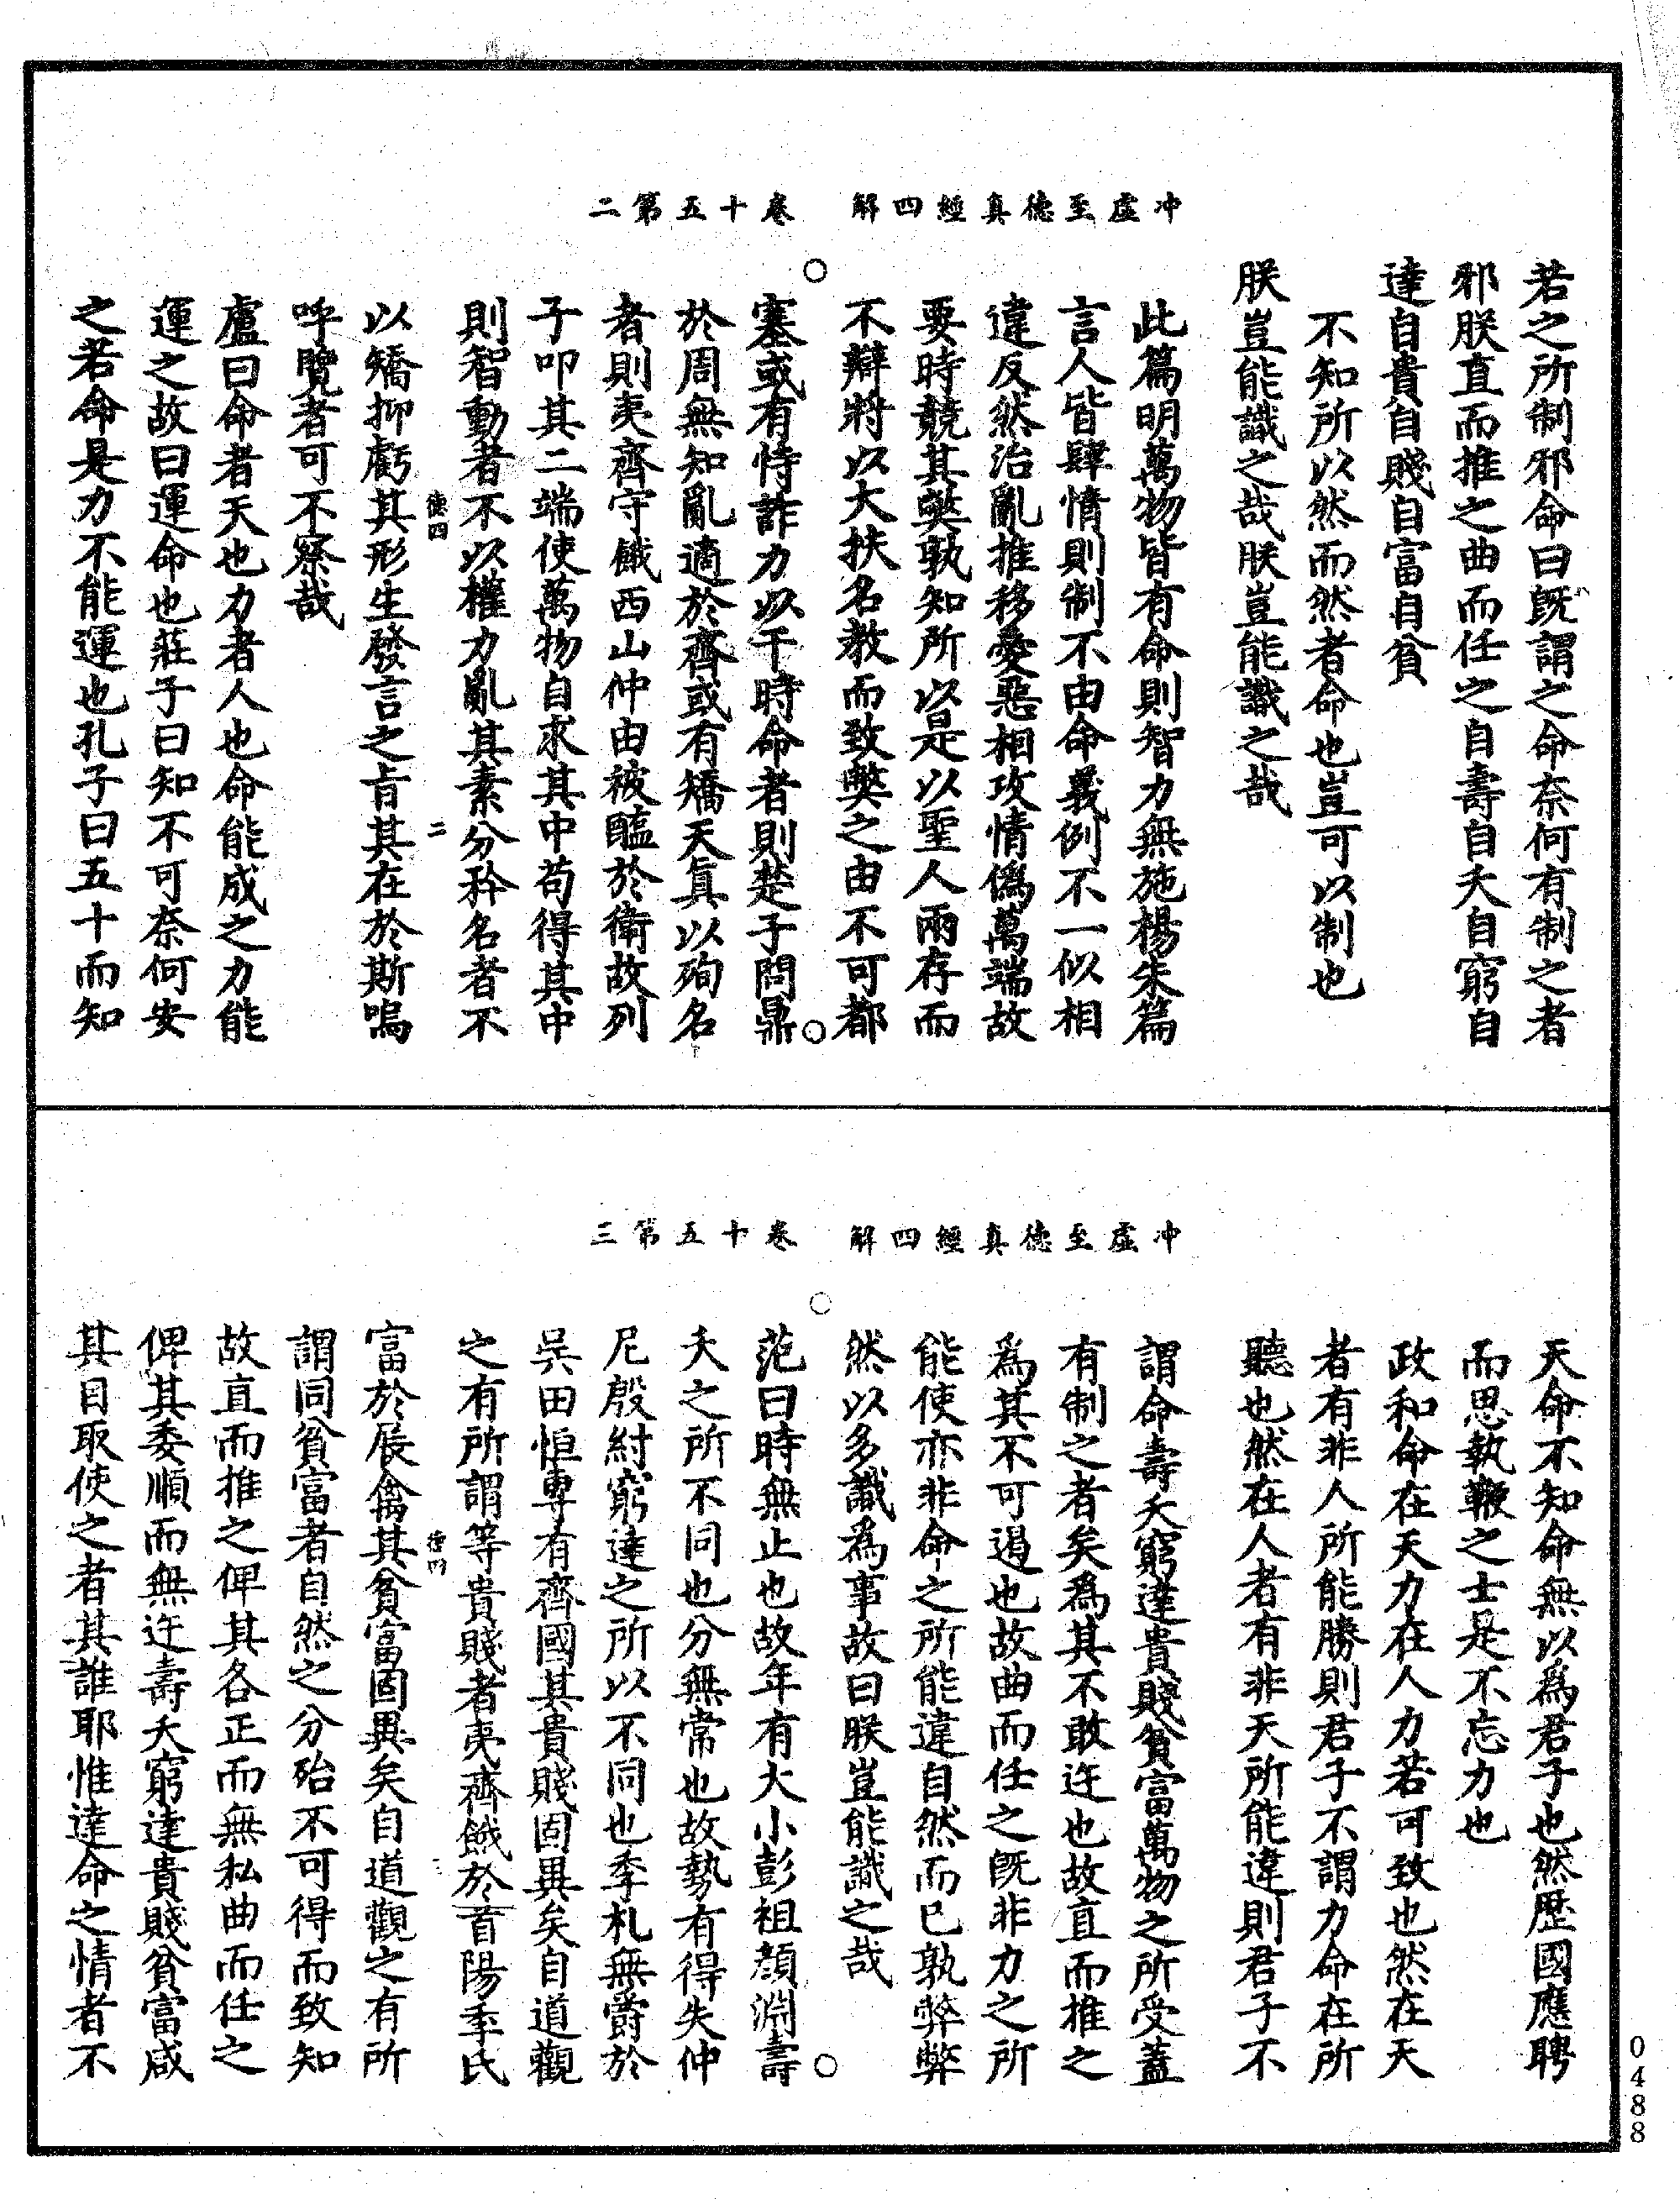 冲虛至德真經四解　卷十五第二
若之所制邪命曰旣謂之命奈何有制之者
邪朕直而推之曲而任之自壽自夭自窮自
達自貴自賤自富自貧
不知所以然而然者命也豈可以制也
朕豈能識之哉朕豈能識之哉
此篇明萬物皆有命則智力無施楊朱篇
言人皆肆情則制不由命義例不一似相
違反然治亂推移愛惡相攻情僞萬端故
要時競其獘孰知所以是以聖人兩存而
不辯將以大扶名教而致獘之由不可都
塞或有恃詐力以干時命者則楚子問鼎
於周無知亂適於齊或有矯天真以殉名
者則夷齊守餓西山仲由被醢於衛故列
子叩其二端使萬物自求其中苟得其中
則智動者不以權力亂其素分矜名者不
德四　二
以矯抑虧其形生發言之旨其在於斯嗚
呼覽者可不察哉
盧曰命者天也力者人也命能成之力能
運之故曰運命也莊子曰知不可奈何安
之若命是力不能運也孔子曰五十而知
冲虛至德真經四解　卷十五第三
天命不知命無以爲君子也然歷國應聘
而思執鞭之士是不忘力也
政和命在天力在人力若可致也然在天
者有非人所能勝則君子不謂力命在所
聽也然在人者有非天所能違則君子不
謂命壽夭窮達貴賤貧富萬物之所受蓋
有制之者矣爲其不敢迕也故直而推之
爲其不可遏也故曲而任之旣非力之所
能使亦非命之所能違自然而已孰弊弊
然以多識為事故曰朕豈能識之哉
范曰時無止也故年有大小彭祖顔淵壽
夭之所不同也分無常也故勢有得失仲
尼殷紂窮達之所以不同也季札無爵於
吳田恒專有齊國其貴賤固異矣自道觀
之有所謂等貴賤者夷齊餓於首陽季氏
德四　三
富於展禽其貧富固異矣自道觀之有所
謂同貧富者自然之分殆不可得而致知
故直而推之俾其各正而無私曲而任之
俾其委順而無迕壽夭窮達貴賤貧富咸
其自取使之者其誰耶惟達命之情者不
0488